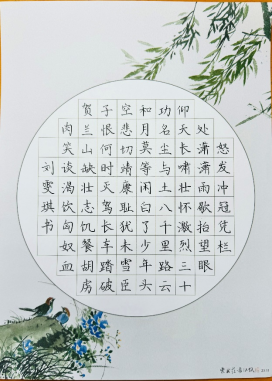 怒发冲冠凭栏
处潇潇雨歇抬望眼
仰天长啸壮怀激烈三十
功名尘与土八千里路云
和月莫等闲白了少年头
空悲切靖康耻犹未雪臣
子恨何时灭驾长车踏破
贺兰山缺壮志饥餐胡虏
肉笑谈渴饮匈奴血
刘雯琪书